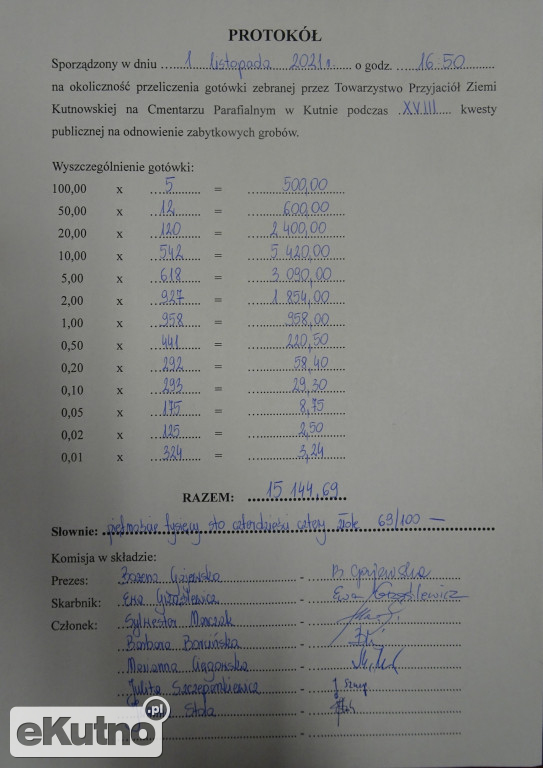 PROTOKÓŁ
Sporządzony w dniu 1 listopada 2021 r. o godz. 16:50
na okoliczność przeliczenia gotówki zebranej przez Towarzystwo Przyjaciół Ziemi
Kutnowskiej na Cmentarzu Parafialnym w Kutnie podczas XVIII kwesty
publicznej na odnowienie zabytkowych grobów.
Wyszczególnienie gotówki:
100,00 x 5 = 500,00
50,00 x 12 = 600,00
20,00 x 120 = 2 400,00
10,00 x 542 = 5 420,00
5,00 x 618 = 3 090,00
2,00 x 927 = 1 854,00
1,00 x 958 = 958,00
0,50 x 441 = 220,50
0,20 x 292 = 58,40
0,10 x 293 = 29,30
0,05 x 175 = 8,75
0,02 x 125 = 2,50
0,01 x 324 = 3,24
RAZEM: 15 144,69
Słownie: piętnaście tysięcy sto czterdzieści cztery złote 69/100 —
Komisja w składzie:
Prezes: Bożena Gajewska - B. Gajewska
Skarbnik: Ewa - Ewa
Członek: Sylwester -
Barbara -
Marianna -
Julita Szczepankiewicz - J. Szczep
Stola -
eKutno.pl